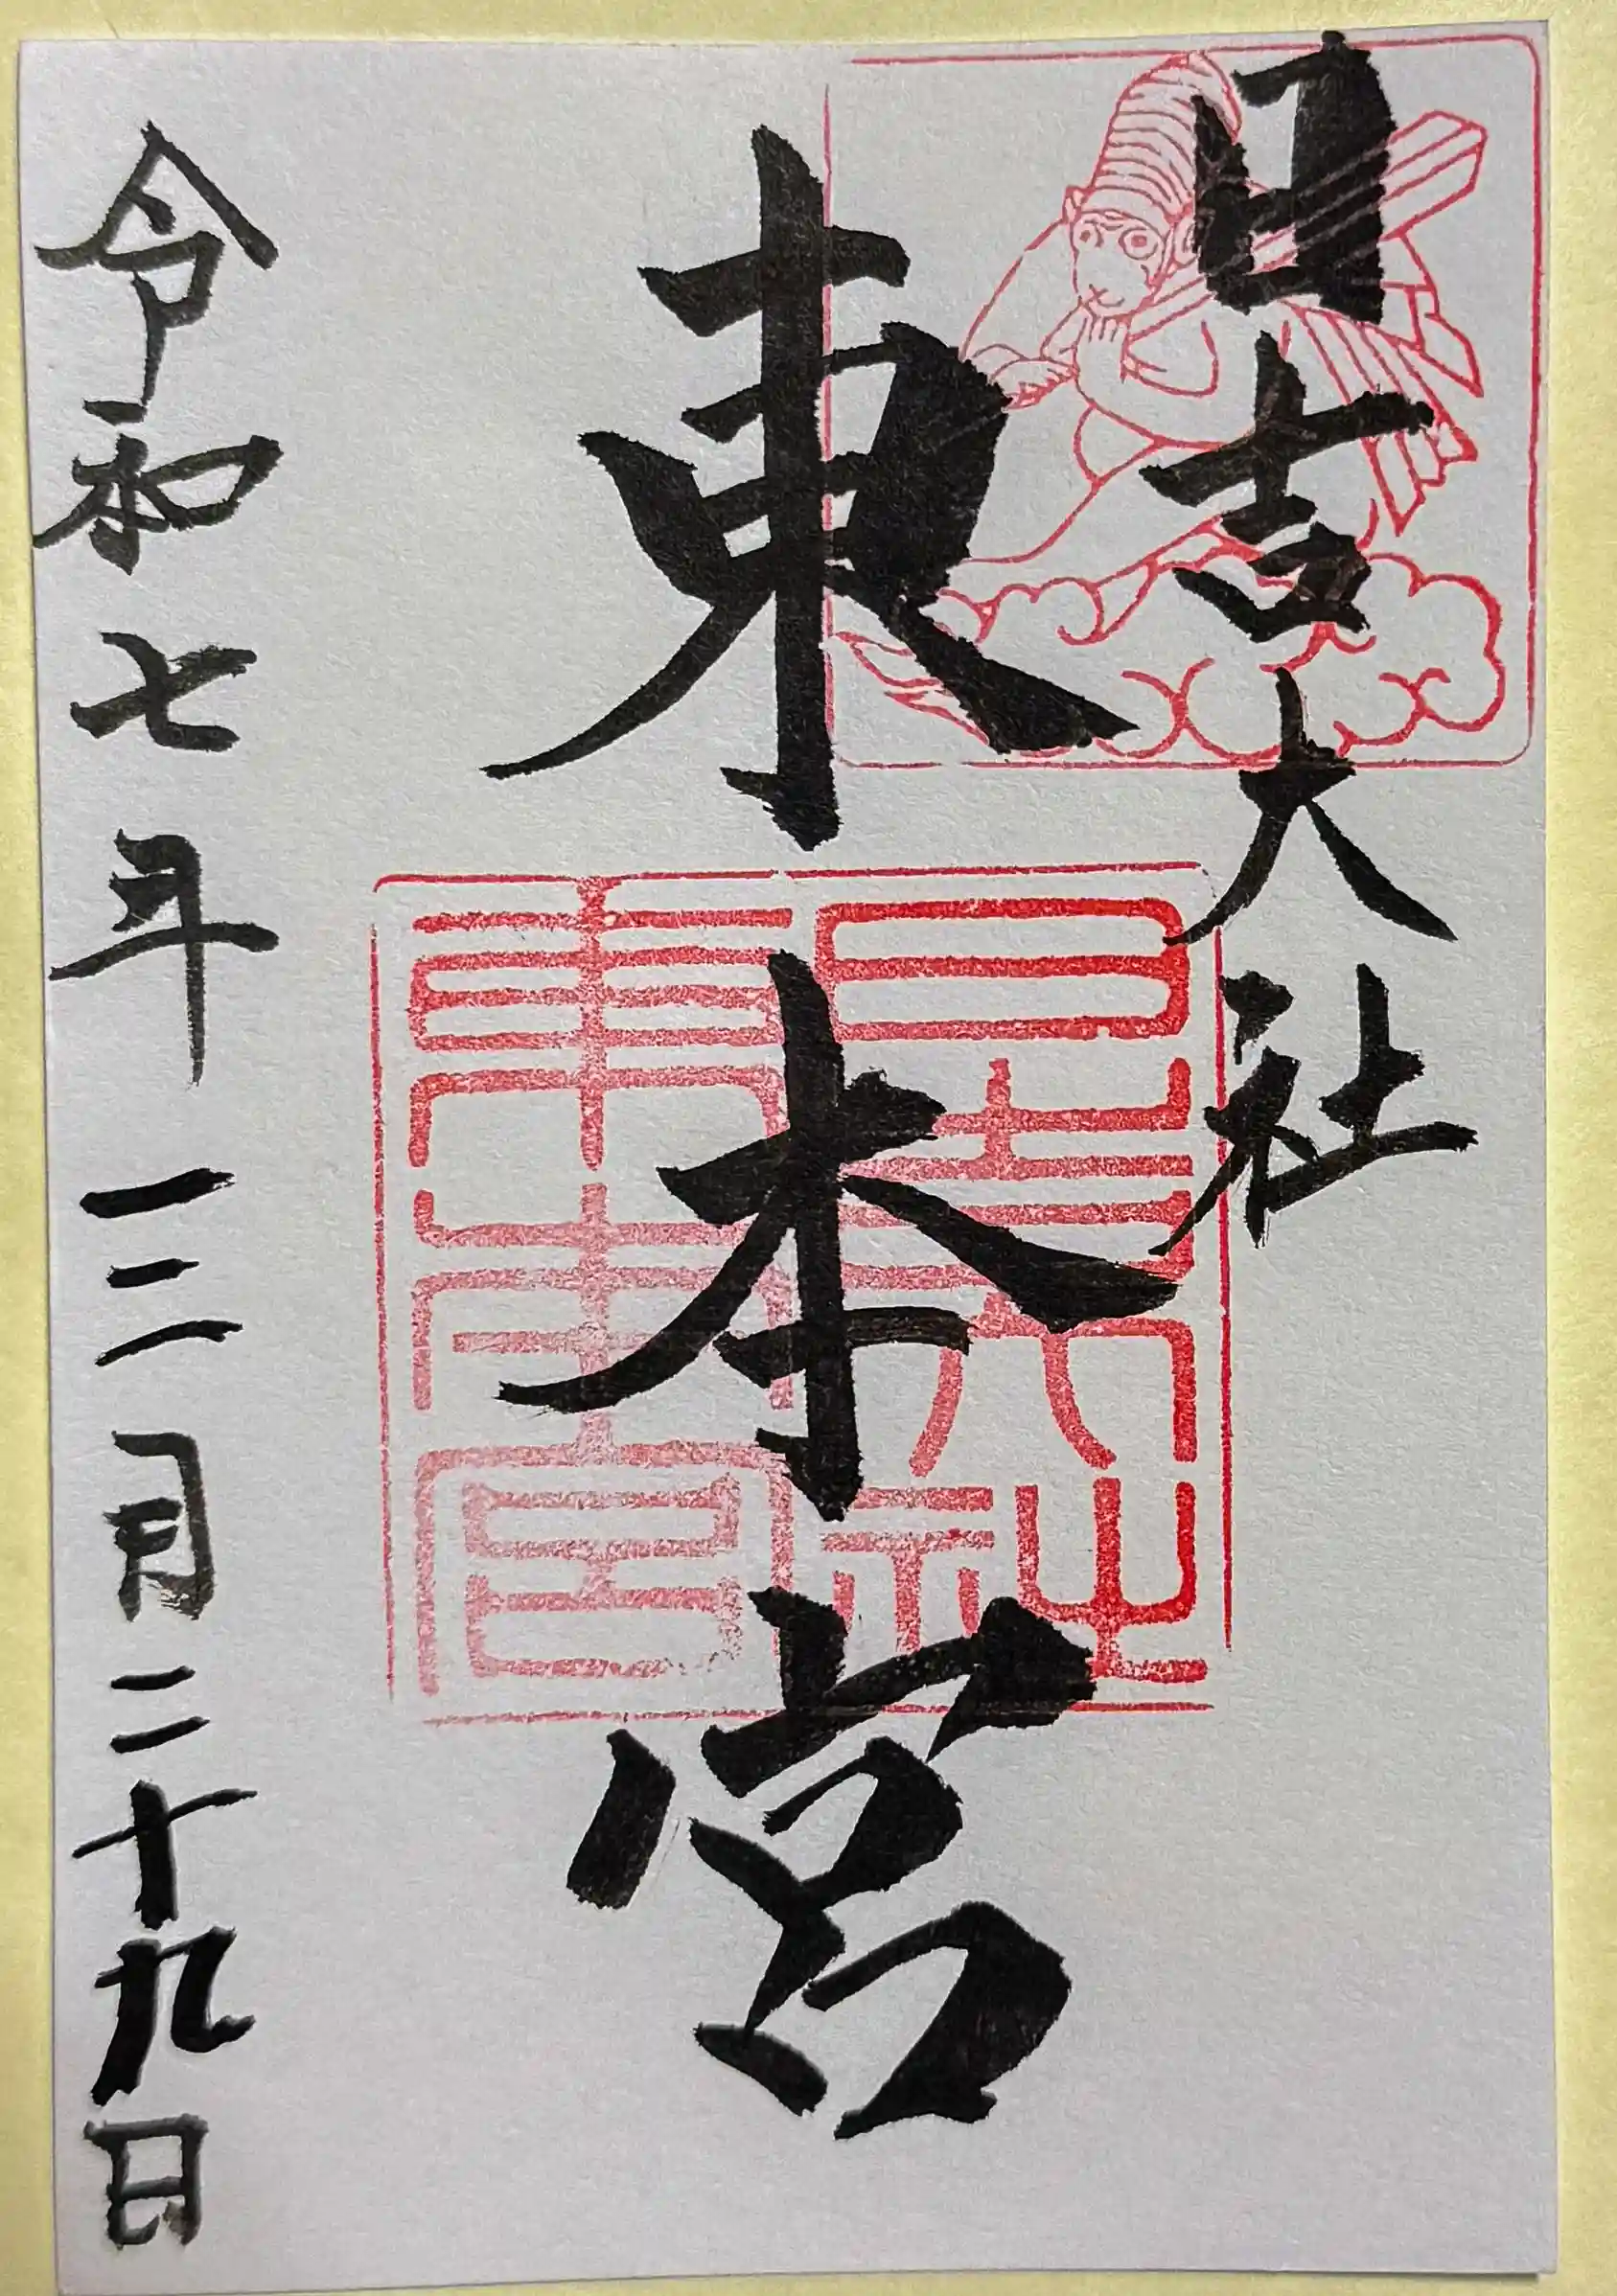 日吉大社
東本宮
令和七年三月二十九日
日吉大社
東本宮